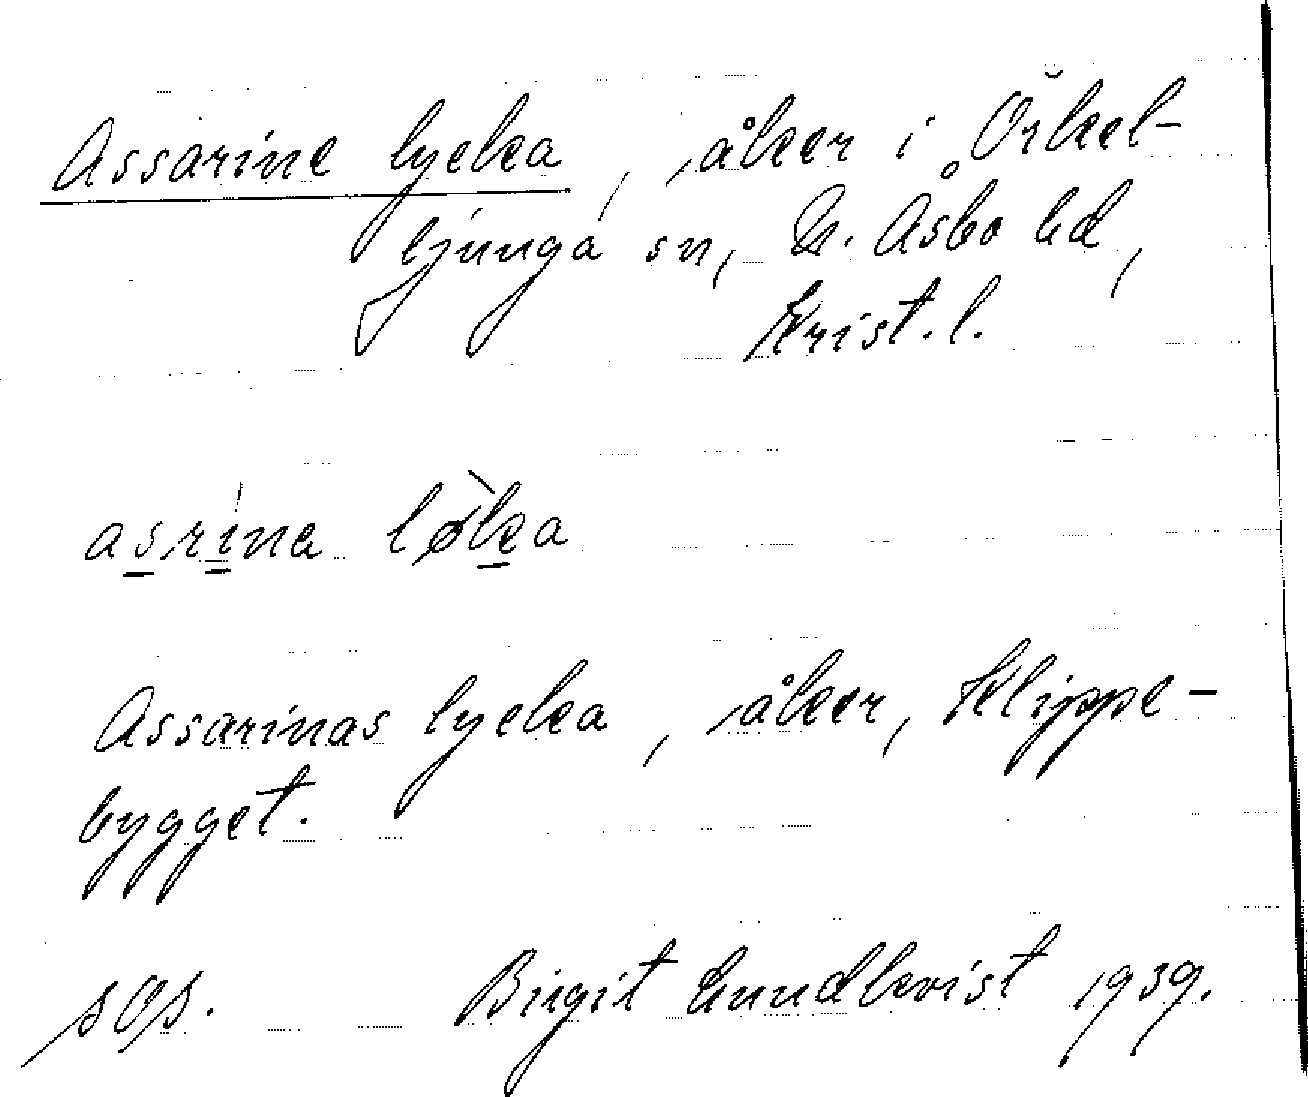 Assarine lycka, åker i Örkel-
ljunga sn, N. Åsbo hd,
Krist. l.
asrina løka
Assarinas lycka, åker, Klippe-
bygget.
sOs. Birgit Lundkvist 1939.